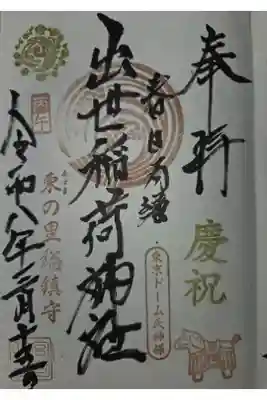 奉拝
慶祝
春日局縁
東京ドーム氏神様
出世稲荷神社
丙午
東の里稲鎮守
令和八年二月十一日